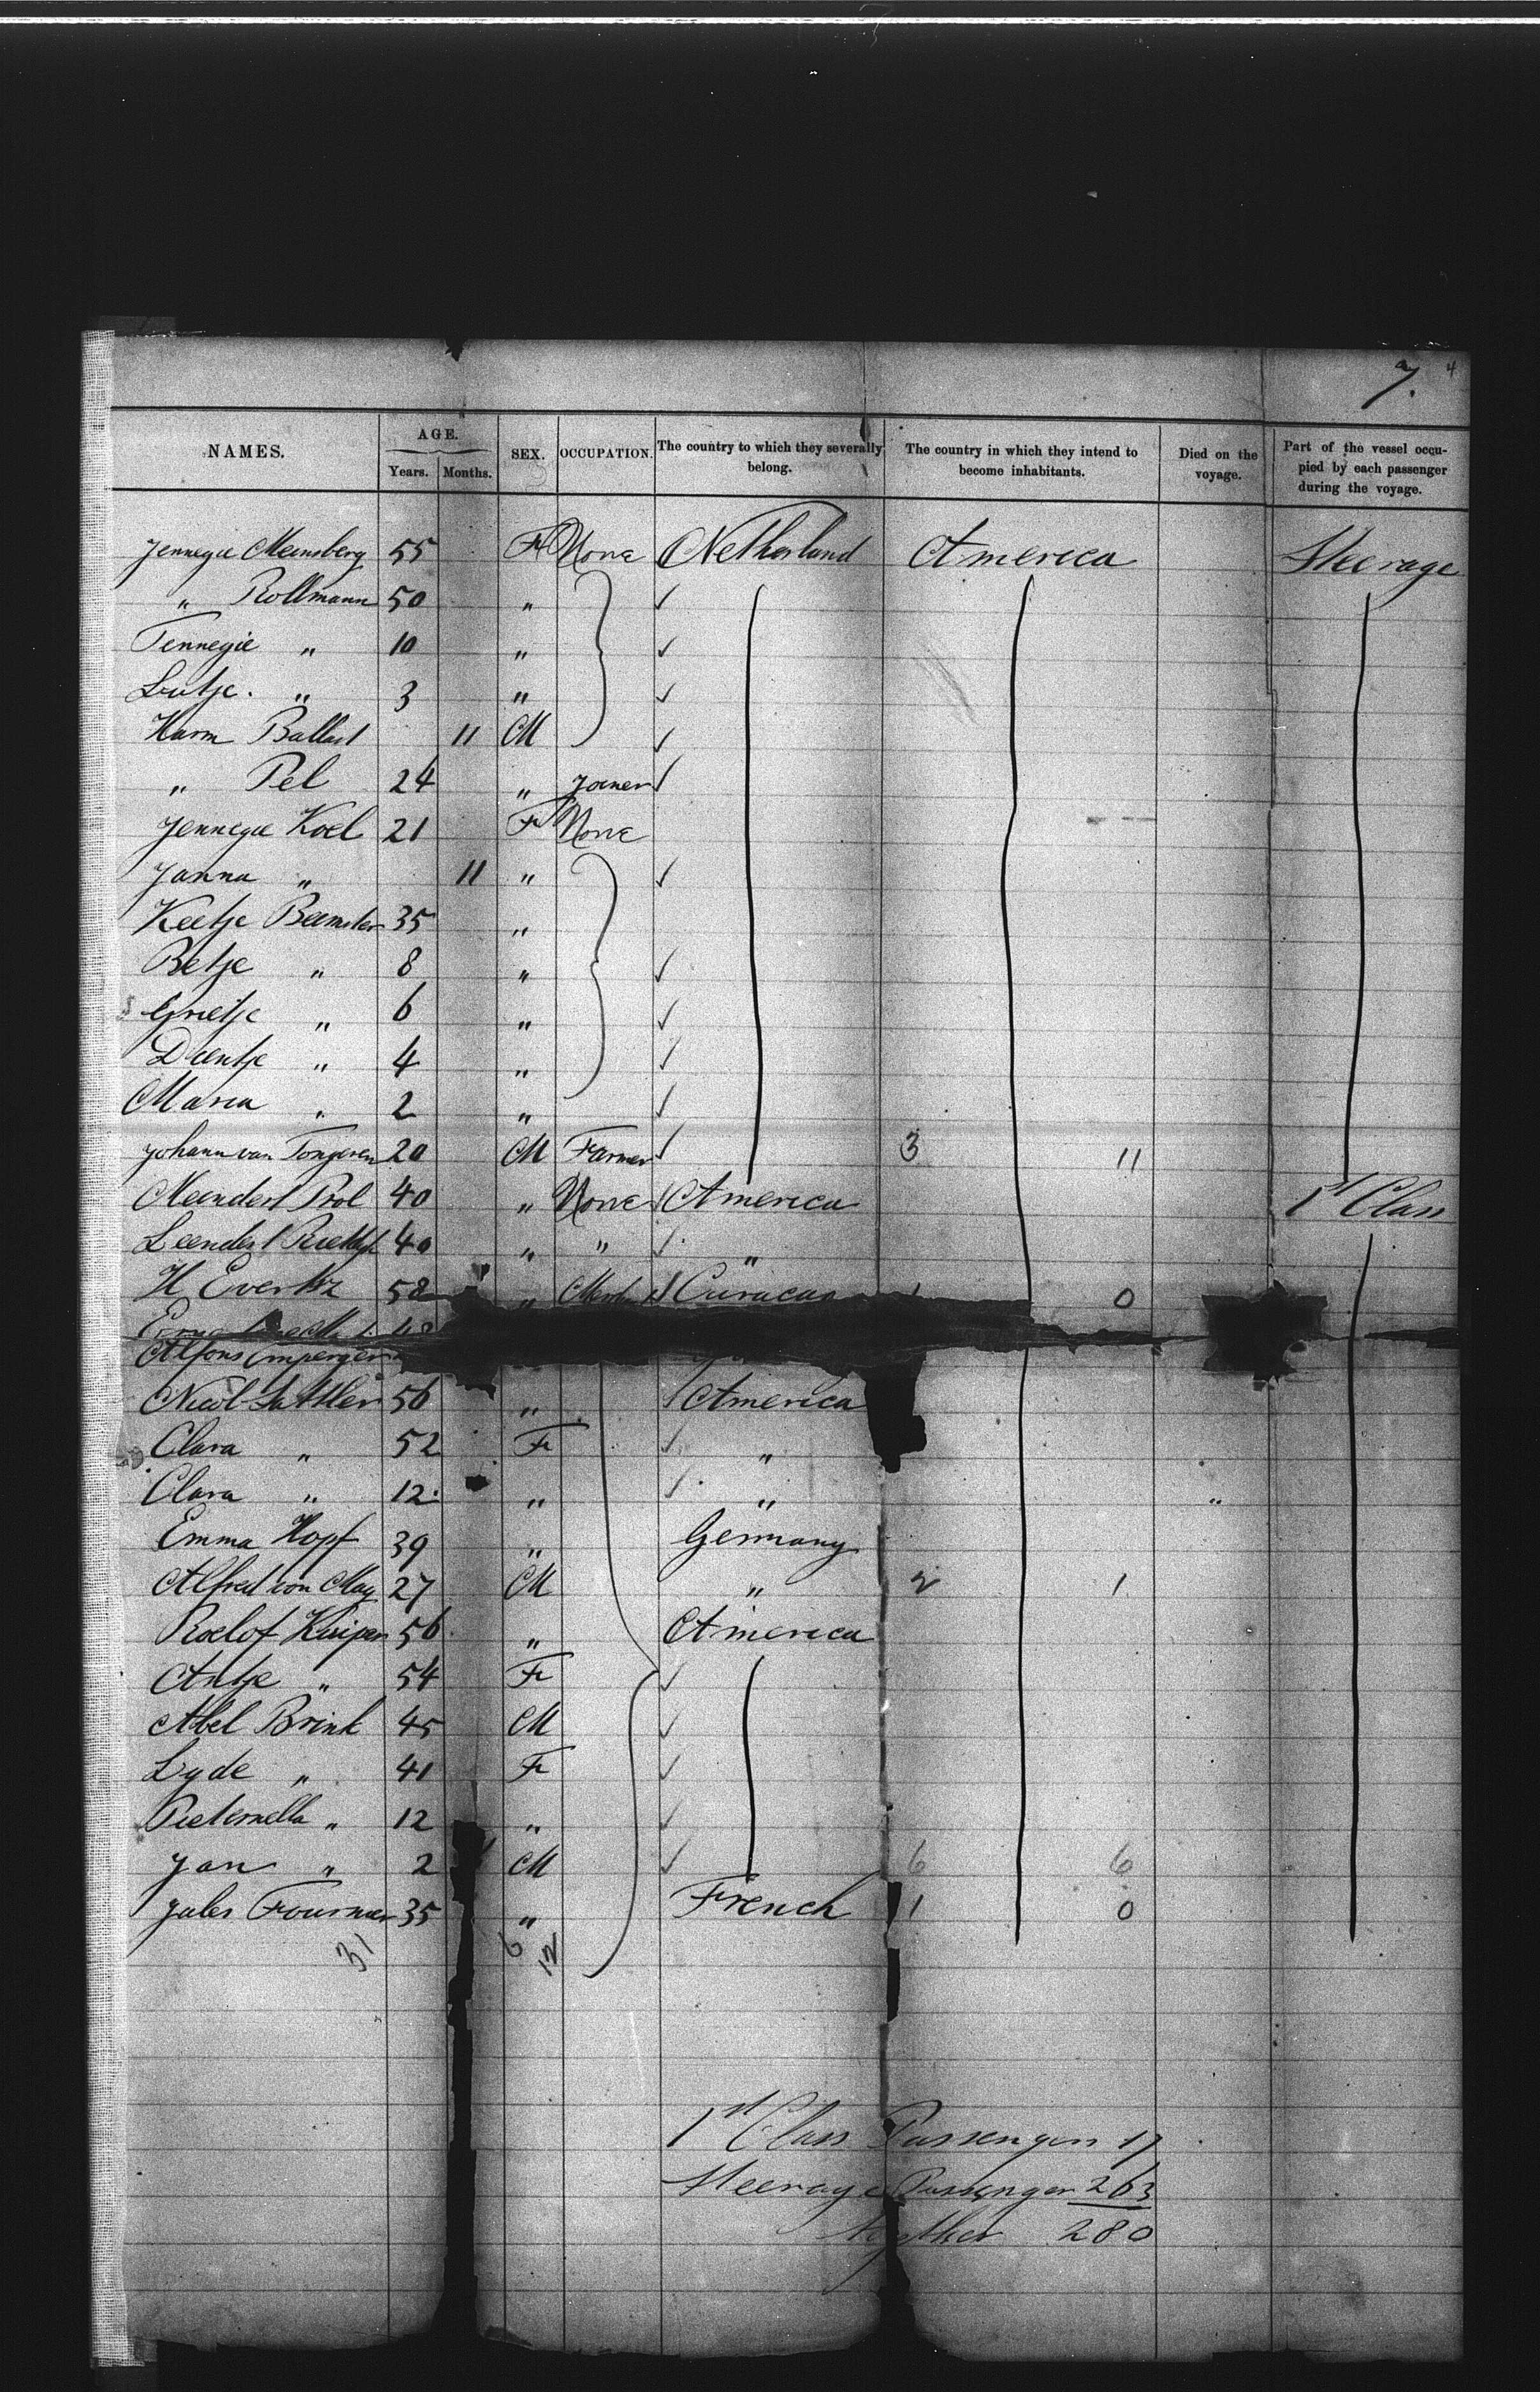 7. 4
NAMES. AGE. Years. Months. SEX. OCCUPATION. The country to which they severally belong. The country in which they intend to become inhabitants. Died on the voyage. Part of the vessel occupied by each passenger during the voyage.
Jennegie Meinsberg 55 F None Netherland America Steerage
" Rollmann 50 "
Tennegie " 10 "
Lutje " 3 "
Harm Ballast 11 M
" Pel 24 " Joiner
Jennegie Koel 21 F None
Janna " 11 "
Keetje Beemster 35 "
Betje " 8 "
Grietje " 6 "
Dientje " 4 "
Maria " 2 "
Johann van Tongeren 20 M Farmer 3 11
Meindert Prol 40 " None America 1st Class
Leendert 40 " " "
H Evertsz 58 " Curacao 1 0
48
Alfons Imperger
Nicol Sattler 56 " America
Clara " 52 F "
Clara " 12 " " "
Emma Hopf 39 " Germany
Alfred von May 27 M " 2 1
Roelof Kuiper 56 " America
Antje " 54 F
Abel Brink 45 M
Lyde " 41 F
Pieternella " 12 "
Jan " 2 M 6 6
Jules Fournier 35 " French 1 0
31 6 12
1st Class Passengers 17
Steerage Passenger 263
together 280